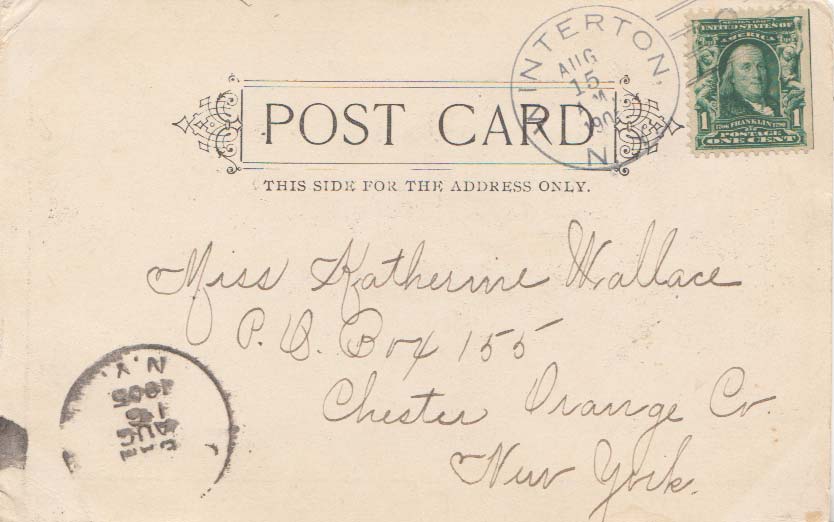 SERIES 1902
UNITED STATES OF
AMERICA
1 1706 FRANKLIN 1790 1
POSTAGE
ONE CENT
INTERTON,
AUG
15
N.
POST CARD
THIS SIDE FOR THE ADDRESS ONLY.
Miss Katherine Wallace
P. O. Box 155
Chester Orange Co.
New York.
N.Y.
1905
AUG